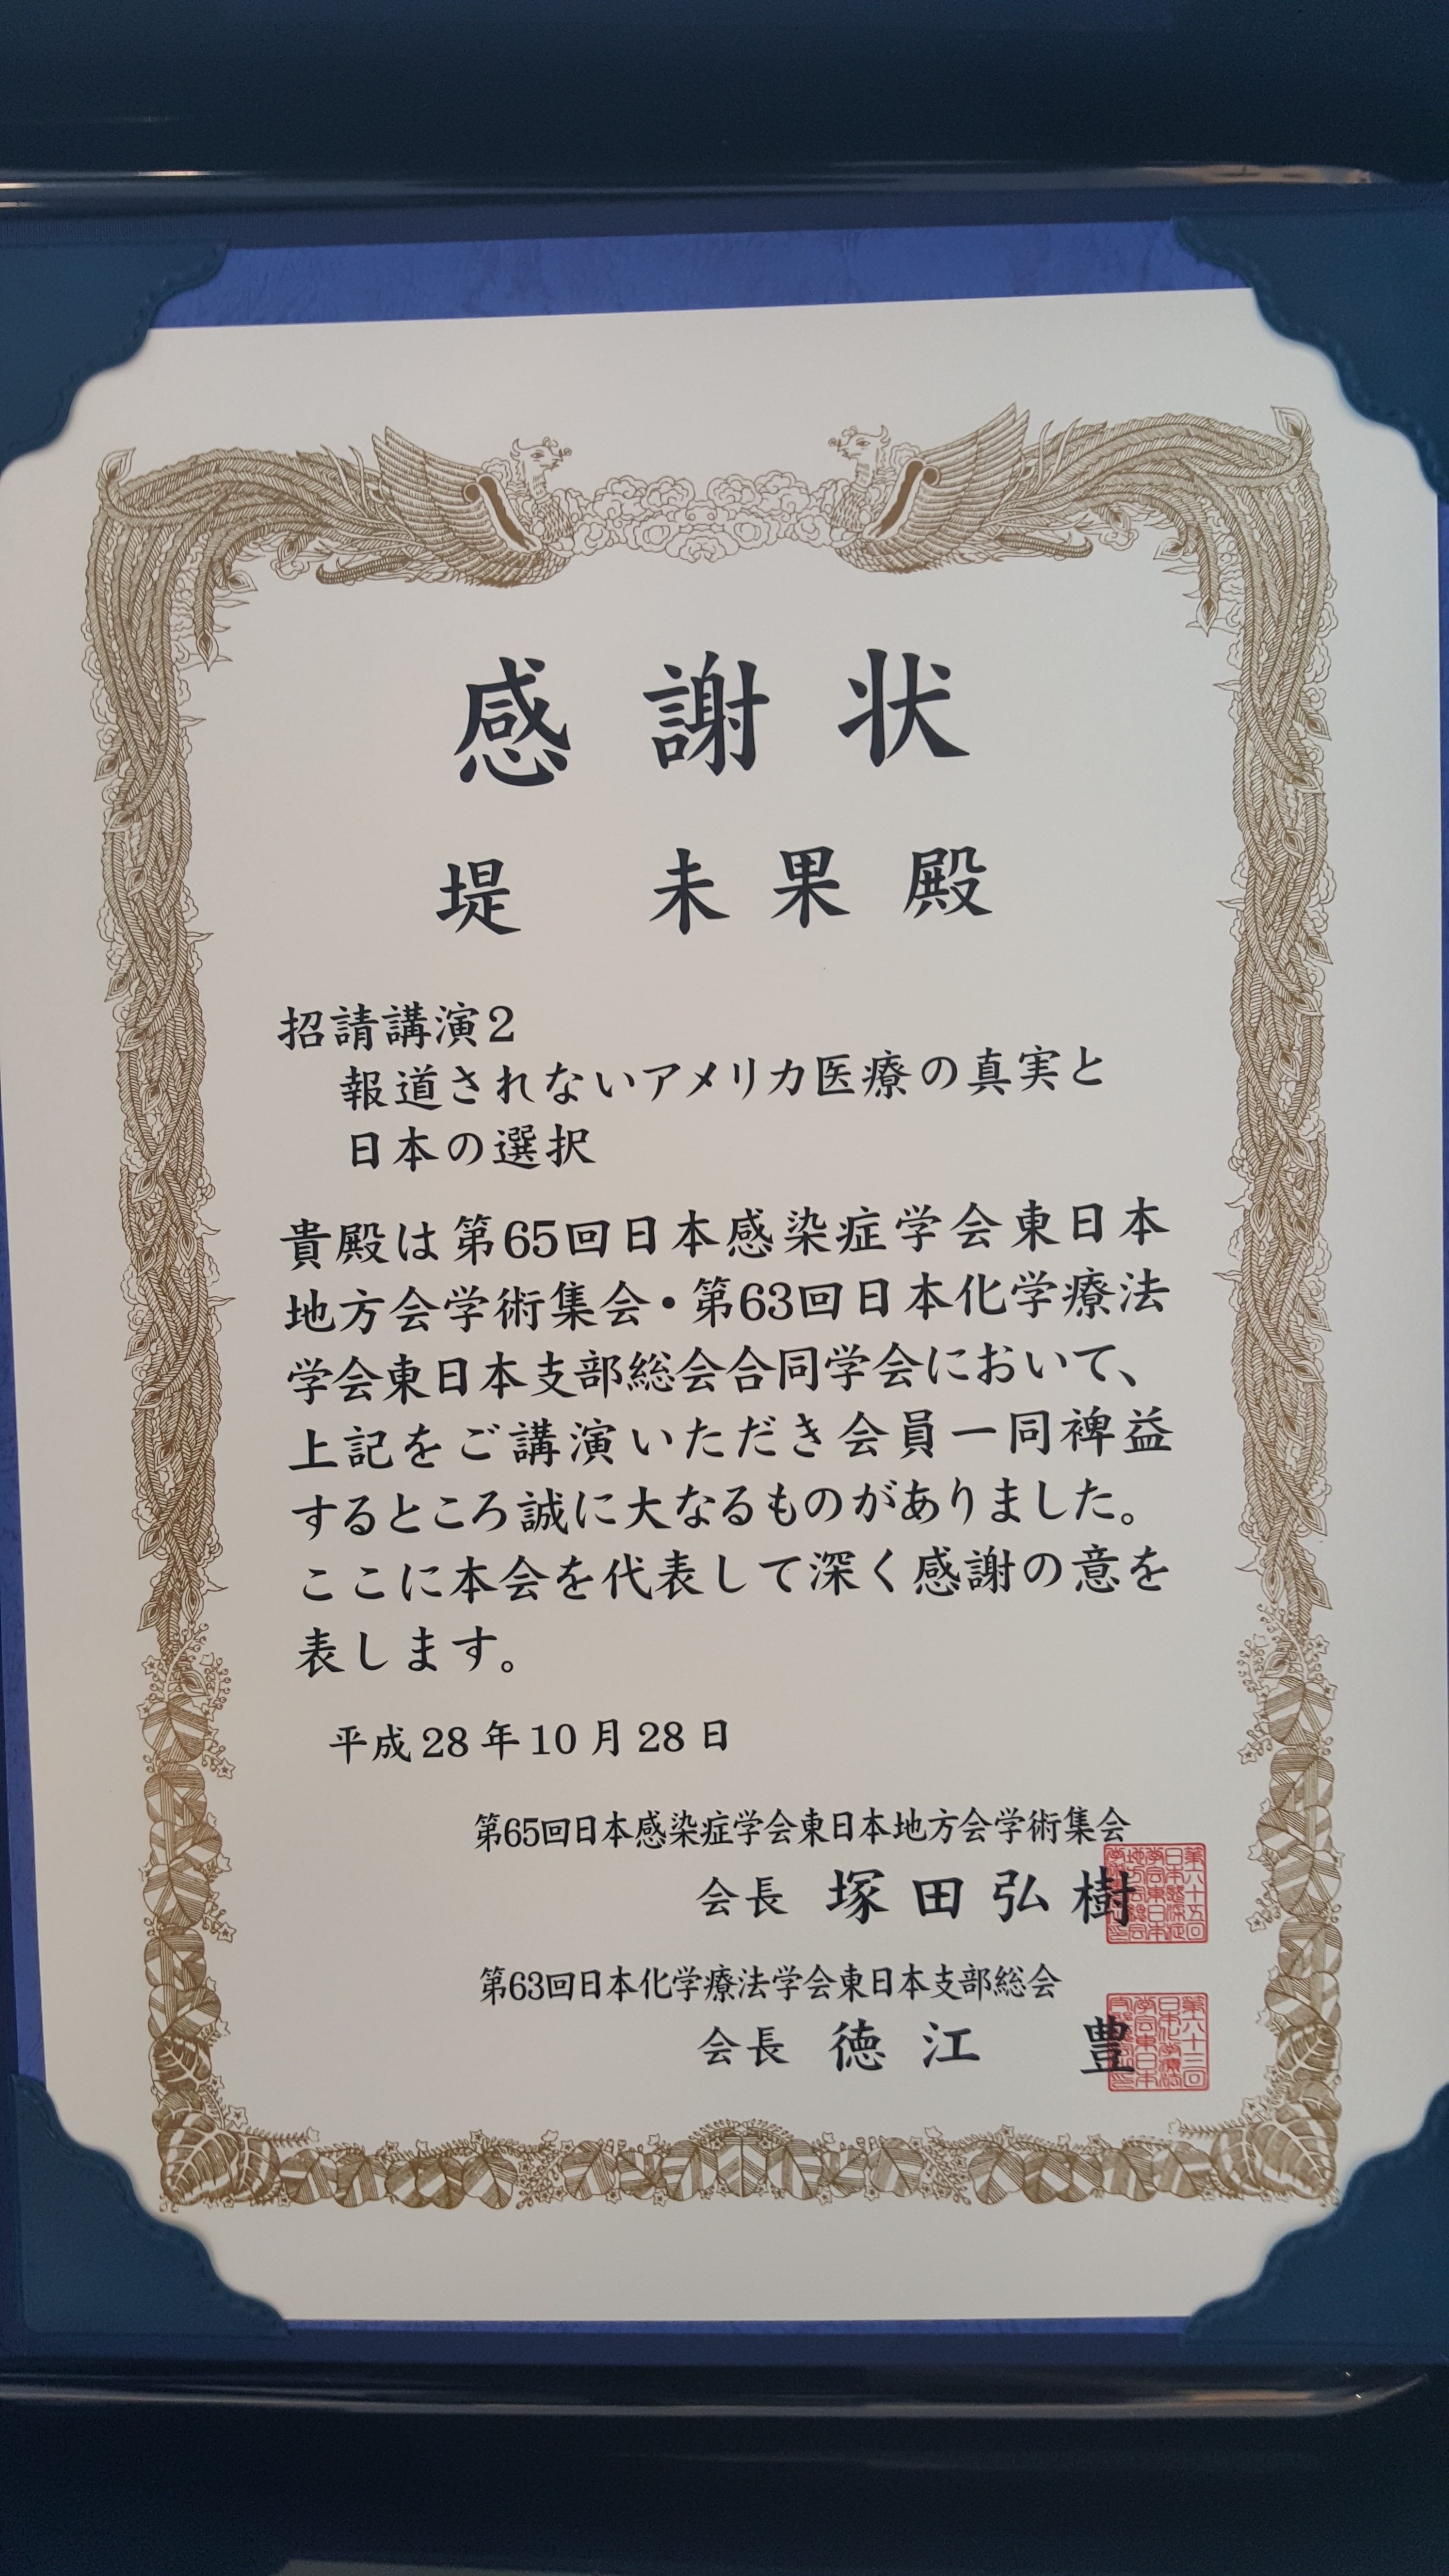 感謝状
堤 未果殿
招請講演2
報道されないアメリカ医療の真実と
日本の選択
貴殿は第65回日本感染症学会東日本
地方会学術集会・第63回日本化学療法
学会東日本支部総会合同学会において、
上記をご講演いただき会員一同裨益
するところ誠に大なるものがありました。
ここに本会を代表して深く感謝の意を
表します。
平成28年10月28日
第65回日本感染症学会東日本地方会学術集会
会長 塚田弘樹
第63回日本化学療法学会東日本支部総会
会長 徳江 豊